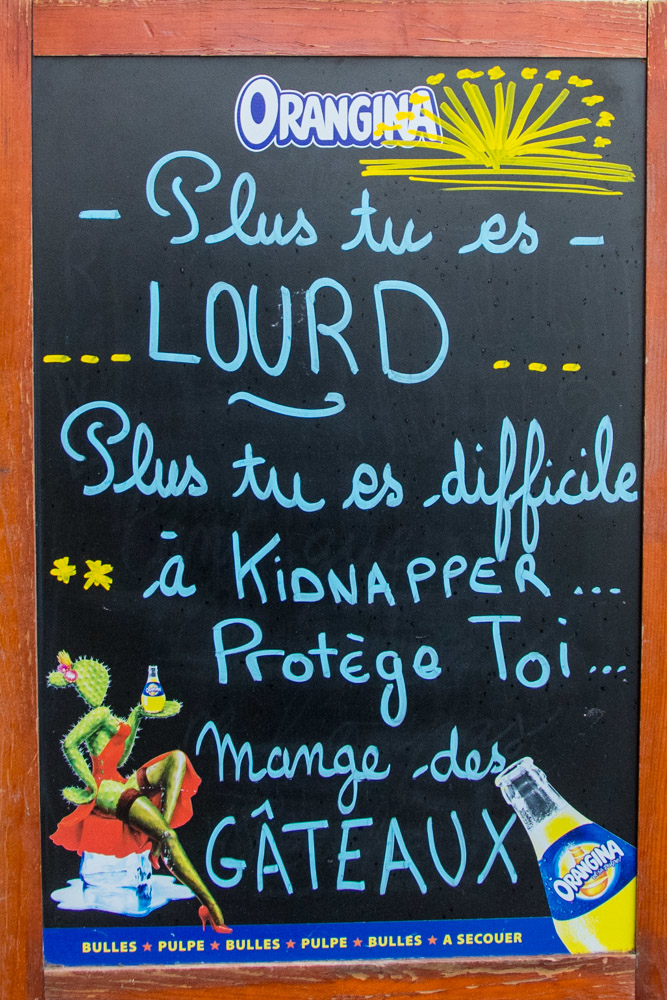 ORANGINA
- Plus tu es -
LOURD
Plus tu es difficile
à KIDNAPPER...
Protège Toi...
Mange des
GÂTEAUX
ORANGINA
BULLES ★ PULPE ★ BULLES ★ PULPE ★ BULLES ★ A SECOUER